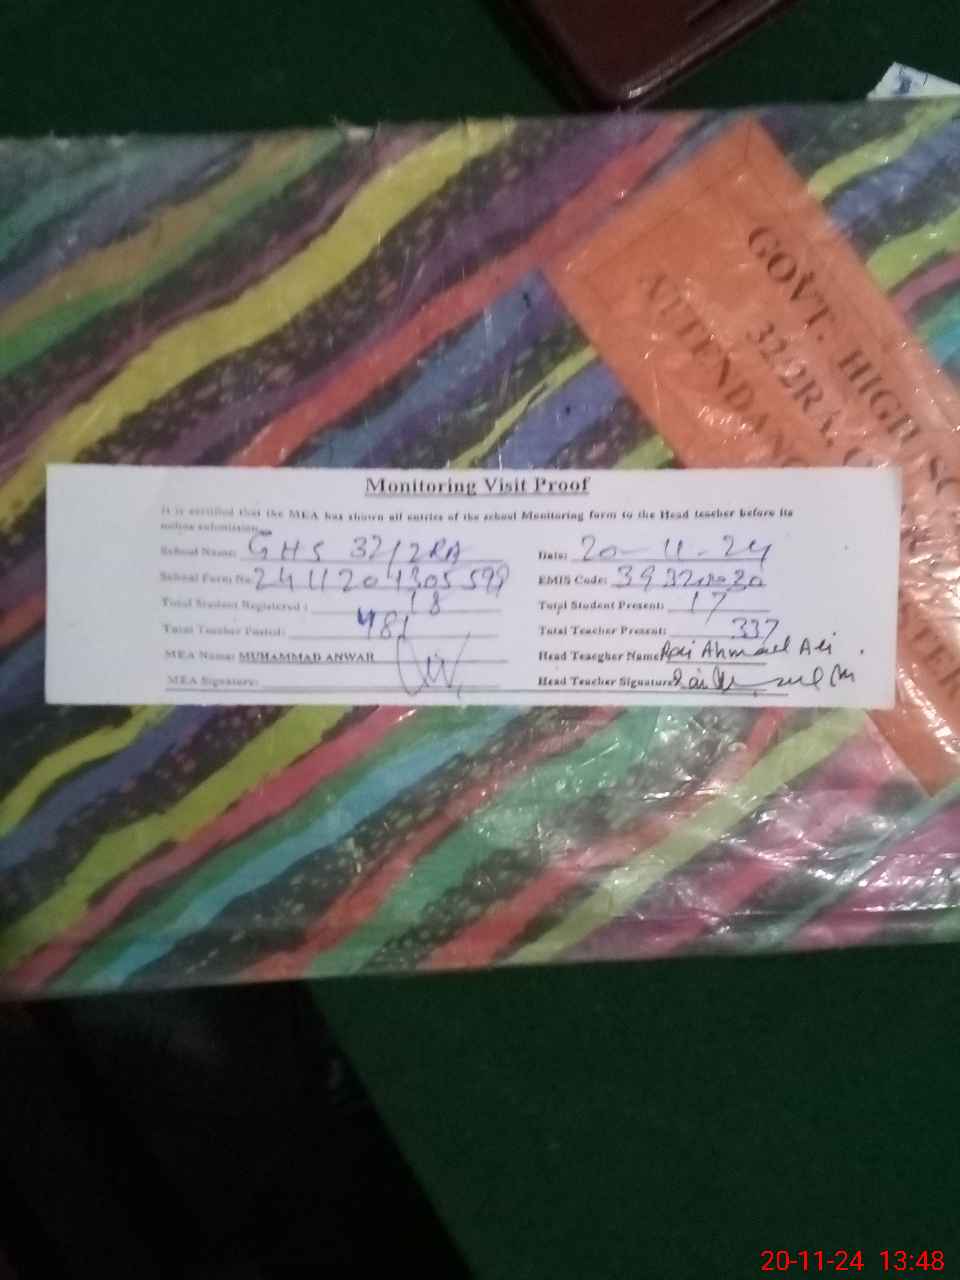 GOVT. HIGH SC
32/2RA, 
ATTENDANC
TER
Monitoring Visit Proof
It is certified that the MEA has shown all entries of the school Monitoring form to the Head teacher before its
online submission.
School Name: GHS 32/2RA Date: 20-11-24
School Form No 241120 EMIS Code:
Total Student Registered : 18 Totpl Student Present: 17
Total Teacher Posted: 481 Total Teacher Present: 337
MEA Name: MUHAMMAD ANWAR Head Teacgher Name: Rai Ahmad Ali
MEA Signature: Head Teacher Signature:
20-11-24 13:48